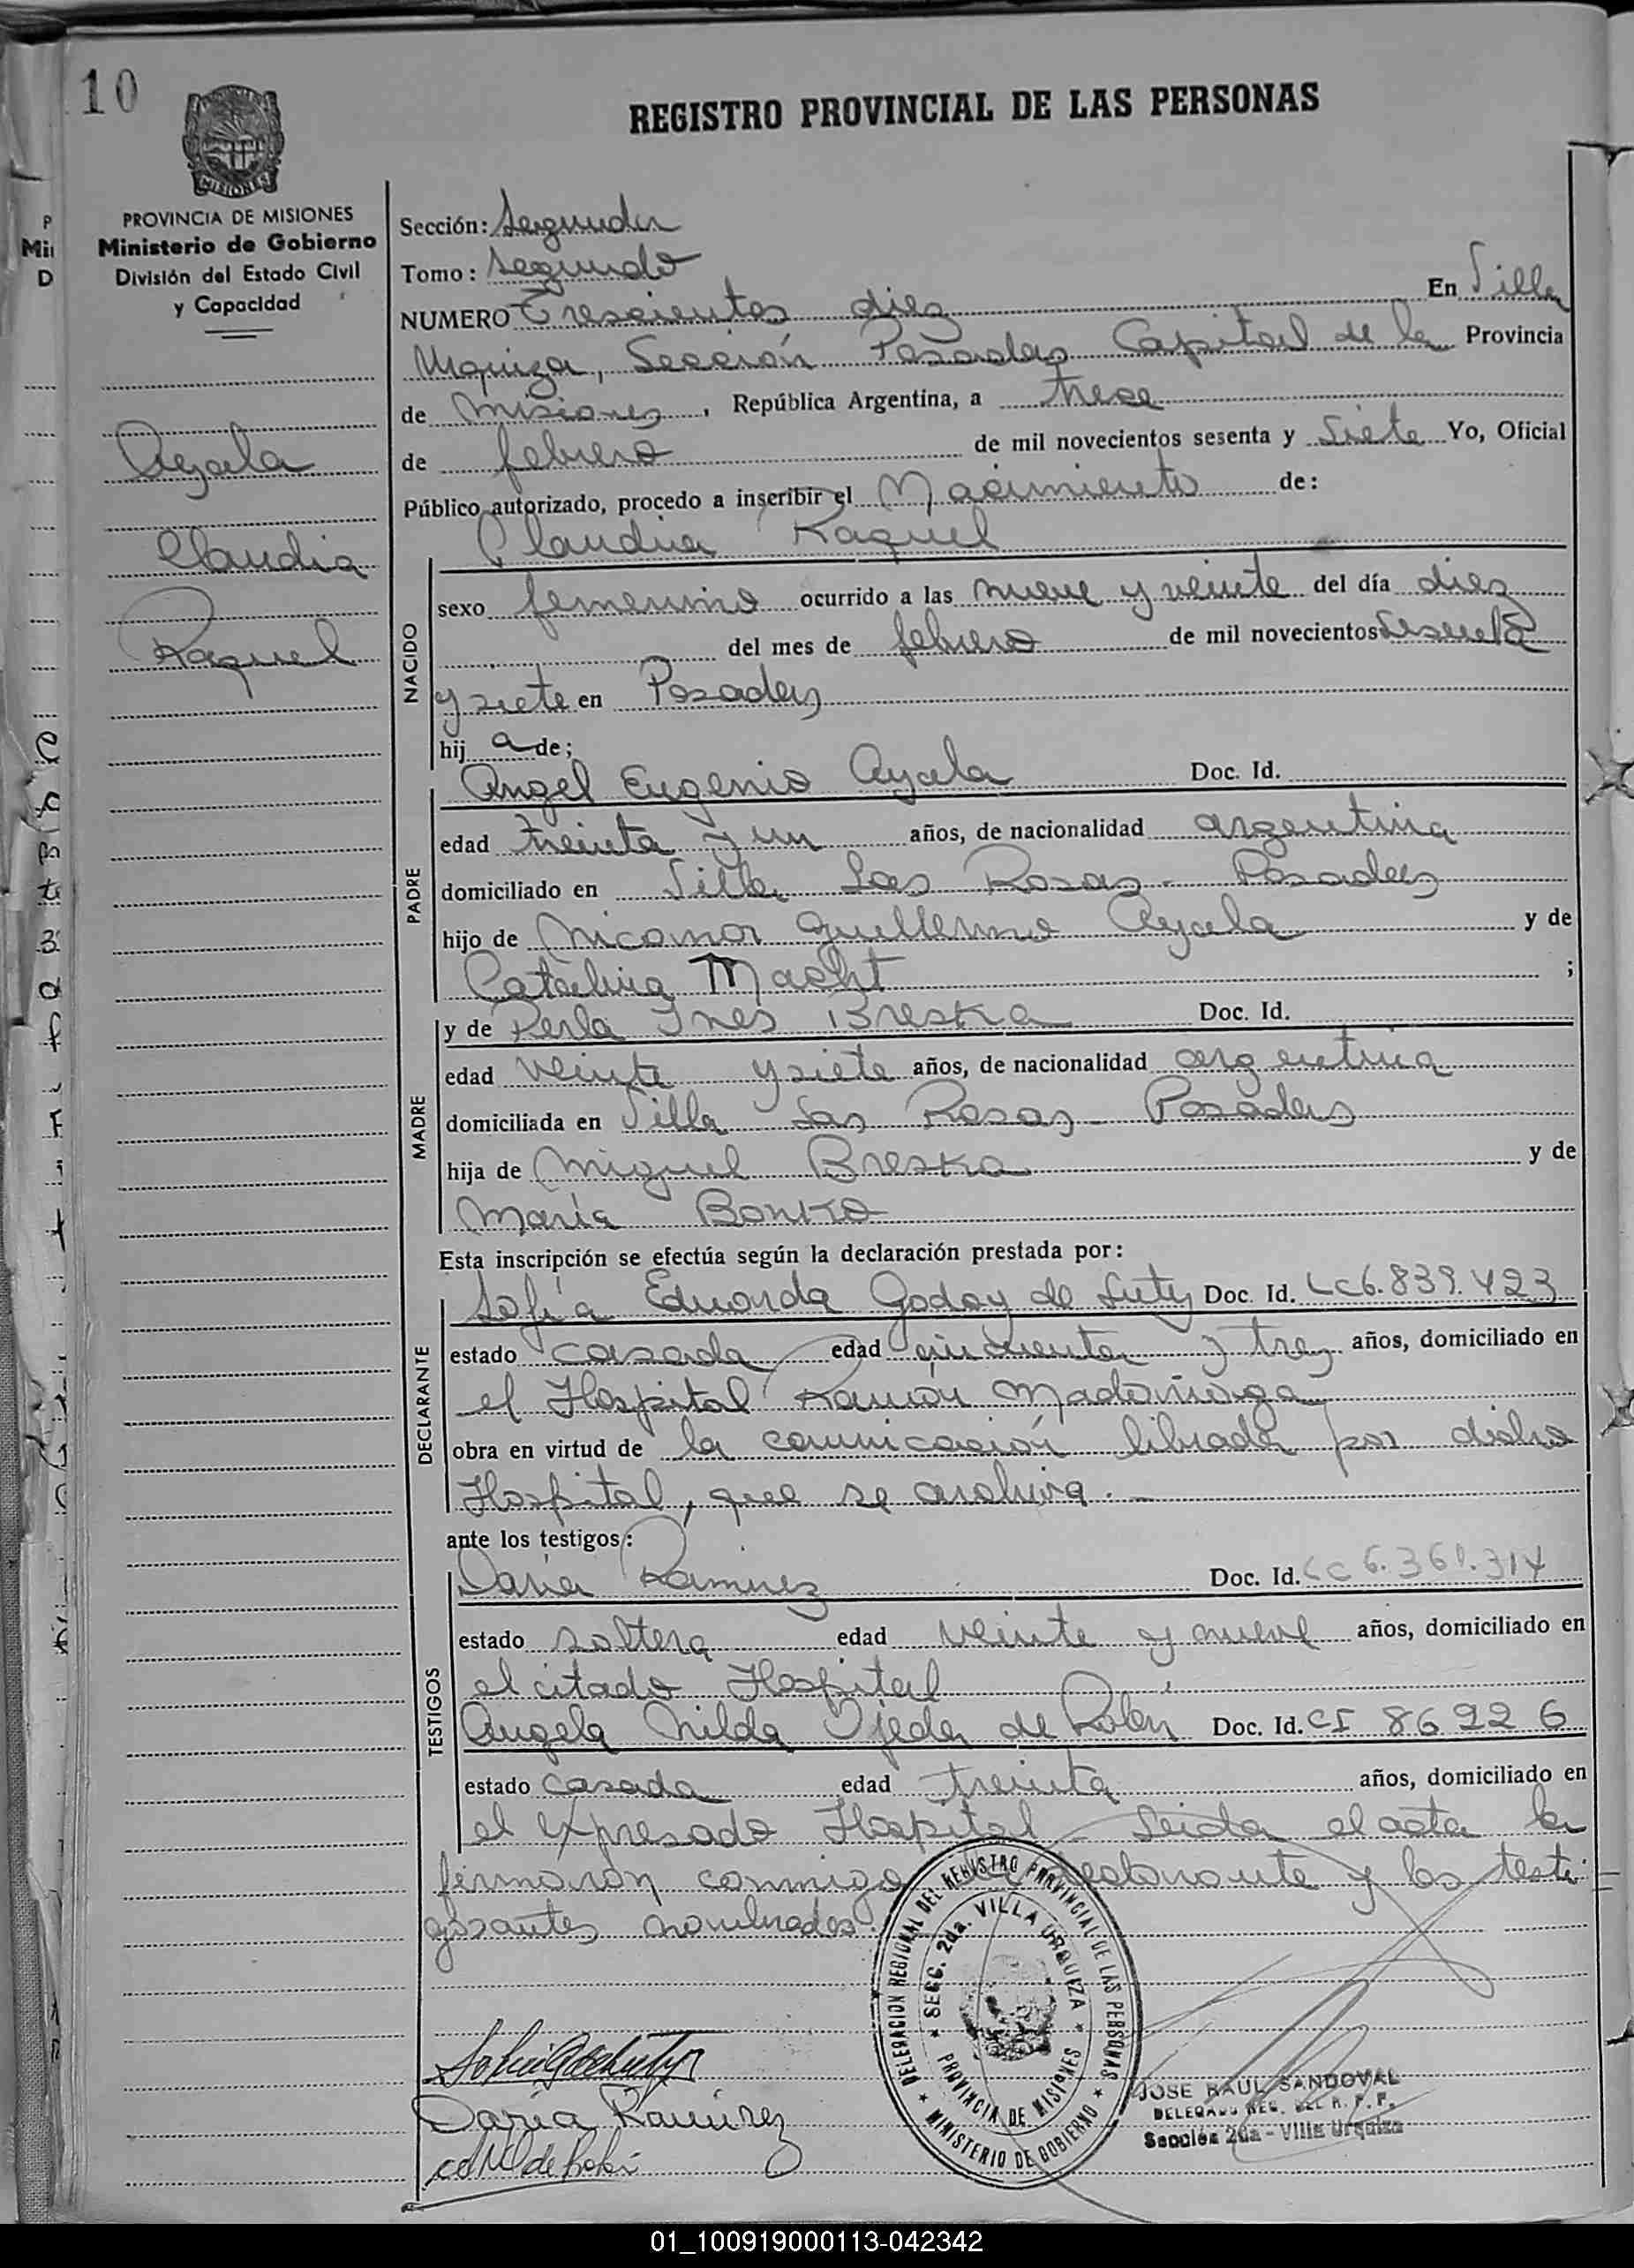 10
REGISTRO PROVINCIAL DE LAS PERSONAS
MISIONES
PROVINCIA DE MISIONES
Ministerio de Gobierno
División del Estado Civil
y Capacidad
Ayala
Claudia
Raquel
Sección: Segunda
Tomo: Segundo
NUMERO Trescientos diez En Villa
Urquiza, Sección Posadas Capital de la Provincia
de Misiones, República Argentina, a trece
de febrero de mil novecientos sesenta y siete Yo, Oficial
Público autorizado, procedo a inscribir el Nacimiento de:
Claudia Raquel
NACIDO
sexo femenino ocurrido a las nueve y veinte del día diez
del mes de febrero de mil novecientos sesenta
y siete en Posadas
hij a de;
Angel Eugenio Ayala Doc. Id.
PADRE
edad treinta y un años, de nacionalidad argentina
domiciliado en Villa Las Rosas - Posadas
hijo de Nicanor Guillermo Ayala y de
Catalina Macht ;
y de Perla Inés Breska Doc. Id.
MADRE
edad veinte y siete años, de nacionalidad argentina
domiciliada en Villa Las Rosas - Posadas
hija de Miguel Breska y de
María Bonko
Esta inscripción se efectúa según la declaración prestada por:
Sofía Eduarda Godoy de Doc. Id. LC 6.839.423
DECLARANTE
estado casada edad cincuenta y tres años, domiciliado en
el Hospital Ramón Madariaga
obra en virtud de la comunicación librada por dicho
Hospital, que se archiva.
ante los testigos:
Daría Ramírez Doc. Id. LC 6.361.314
TESTIGOS
estado soltera edad veinte y nueve años, domiciliado en
el citado Hospital
Angela Nilda Ojeda de Doc. Id. CI 86226
estado casada edad treinta años, domiciliado en
el expresado Hospital - Leida el acta la
firmaron conmigo la declarante y los testi-
gos antes nombrados.
DELEGACION REGIONAL DEL REGISTRO PROVINCIAL DE LAS PERSONAS
SECC. 2da. VILLA URQUIZA
PROVINCIA DE MISIONES
MINISTERIO DE GOBIERNO
Daría Ramírez
JOSE RAUL SANDOVAL
DELEGADO REG. DEL R. P. P.
Sección 2da - Villa Urquiza
01_100919000113-042342